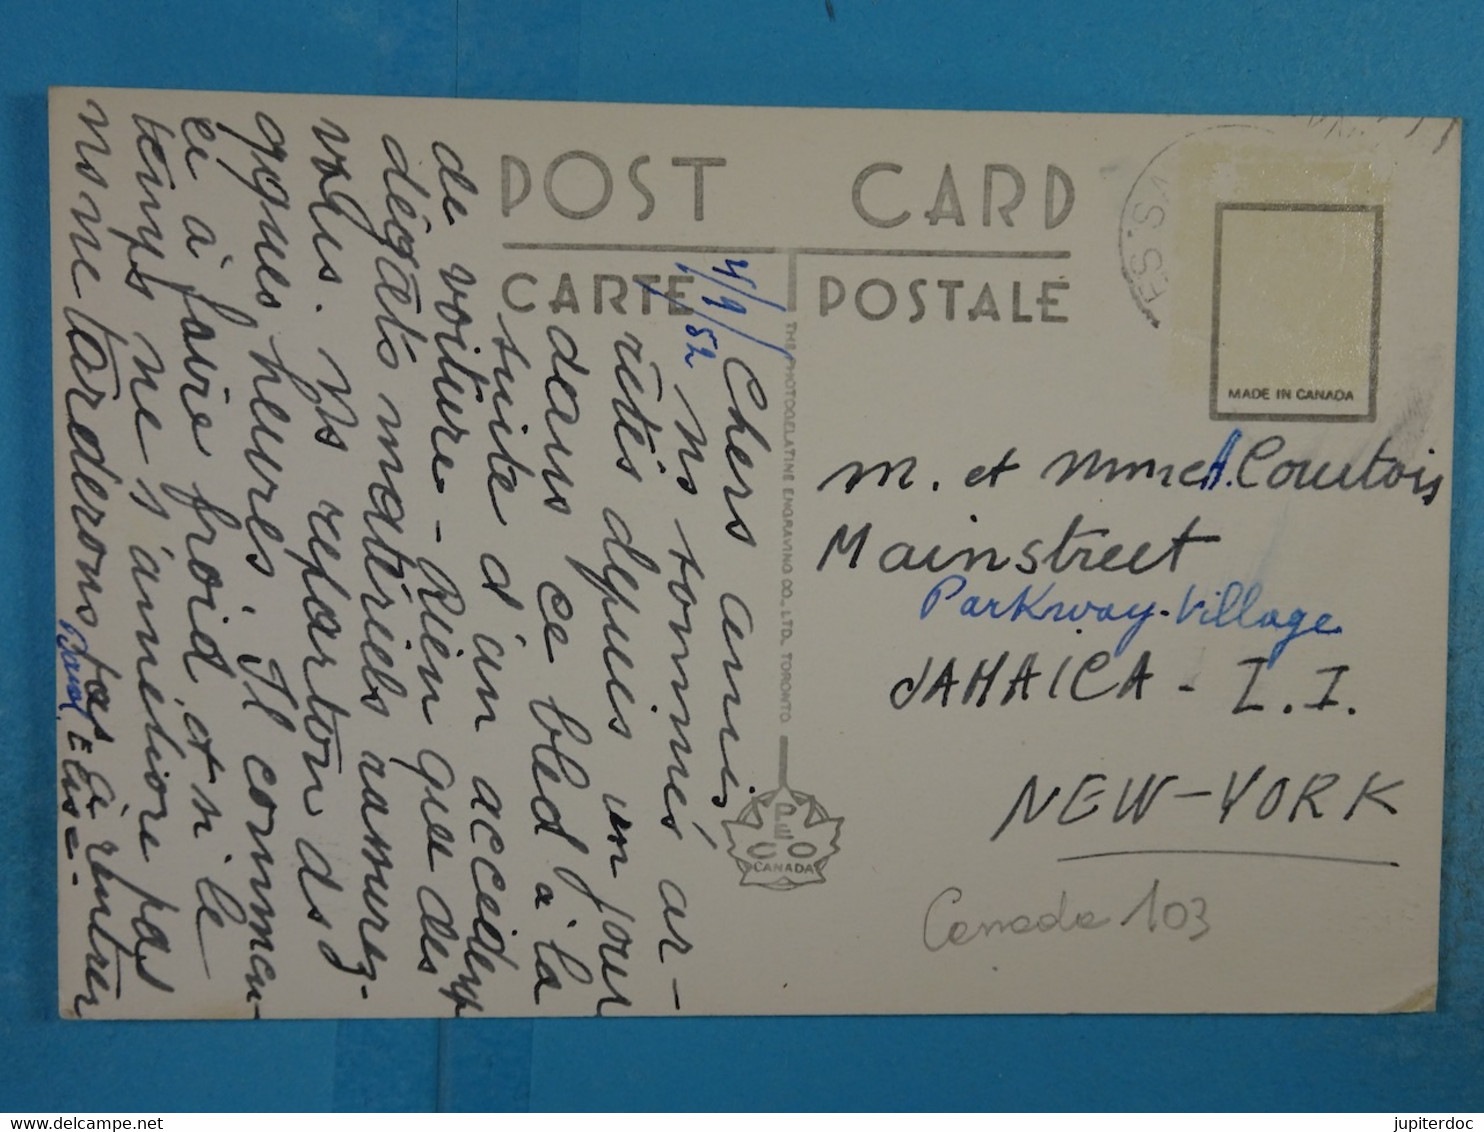 POST CARD
CARTE POSTALE
4/9/52
Chers amis,
Ns sommes ar-
rêtés depuis un jour
dans ce bled à la
suite d'un accident
de voiture - Rien que des
dégâts matériels rassurez-
vous. Ns repartons ds
qques heures. Il commen-
ce à faire froid et si le
temps ne s'améliore pas
ns ne tarderons pas à rentrer
Elise
THE PHOTOGELATINE ENGRAVING CO., LTD. TORONTO
CANADA
MADE IN CANADA
M. et Mme A. Courtois
Mainstreet
Parkway-Village
JAMAICA - L.I.
NEW-YORK
Canada 103
jupiterdoc